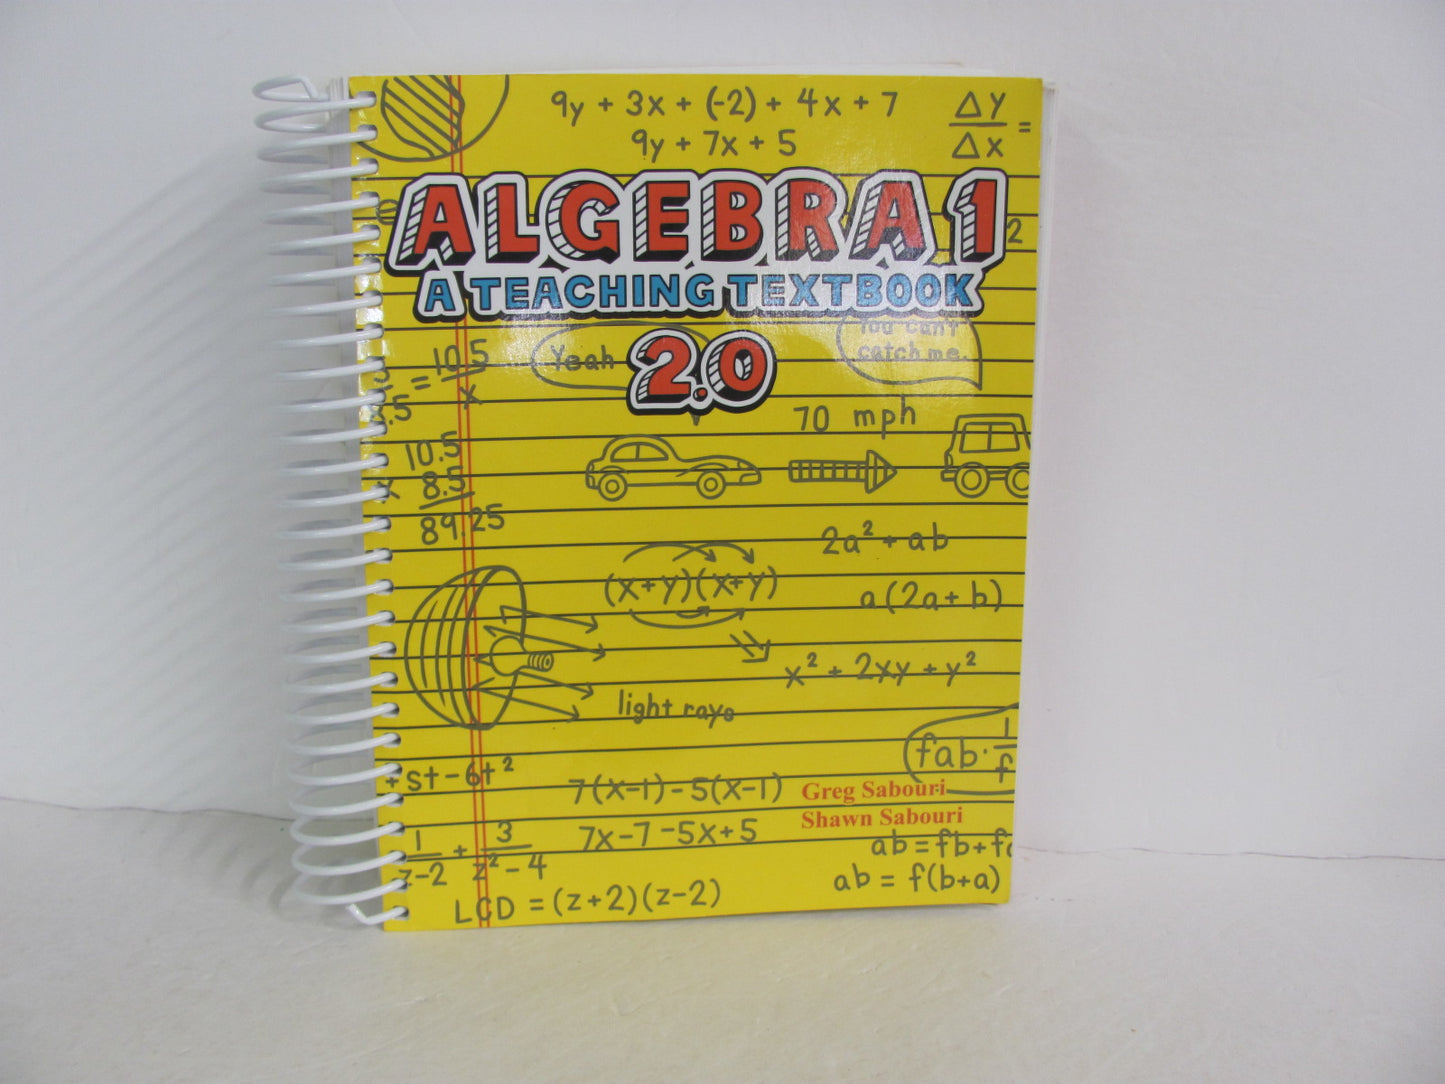 9y + 3x + (-2) + 4x + 7
9y + 7x + 5
ΔY
Δx =
ALGEBRA 1
2
A TEACHING TEXTBOOK
2.0
Yeah
You can't
catch me.
= 10.5
x
.5
70 mph
10.5
x 8.5
89.25
2a² + ab
(x+y)(x+y)
a(2a+b)
x² + 2xy + y²
light rays
fab · 1
f
+st-6t²
7(x-1)-5(x-1)
Greg Sabouri
Shawn Sabouri
7x-7-5x+5
1 + 3
z-2 z²-4
ab = fb+fa
ab = f(b+a)
LCD = (z+2)(z-2)